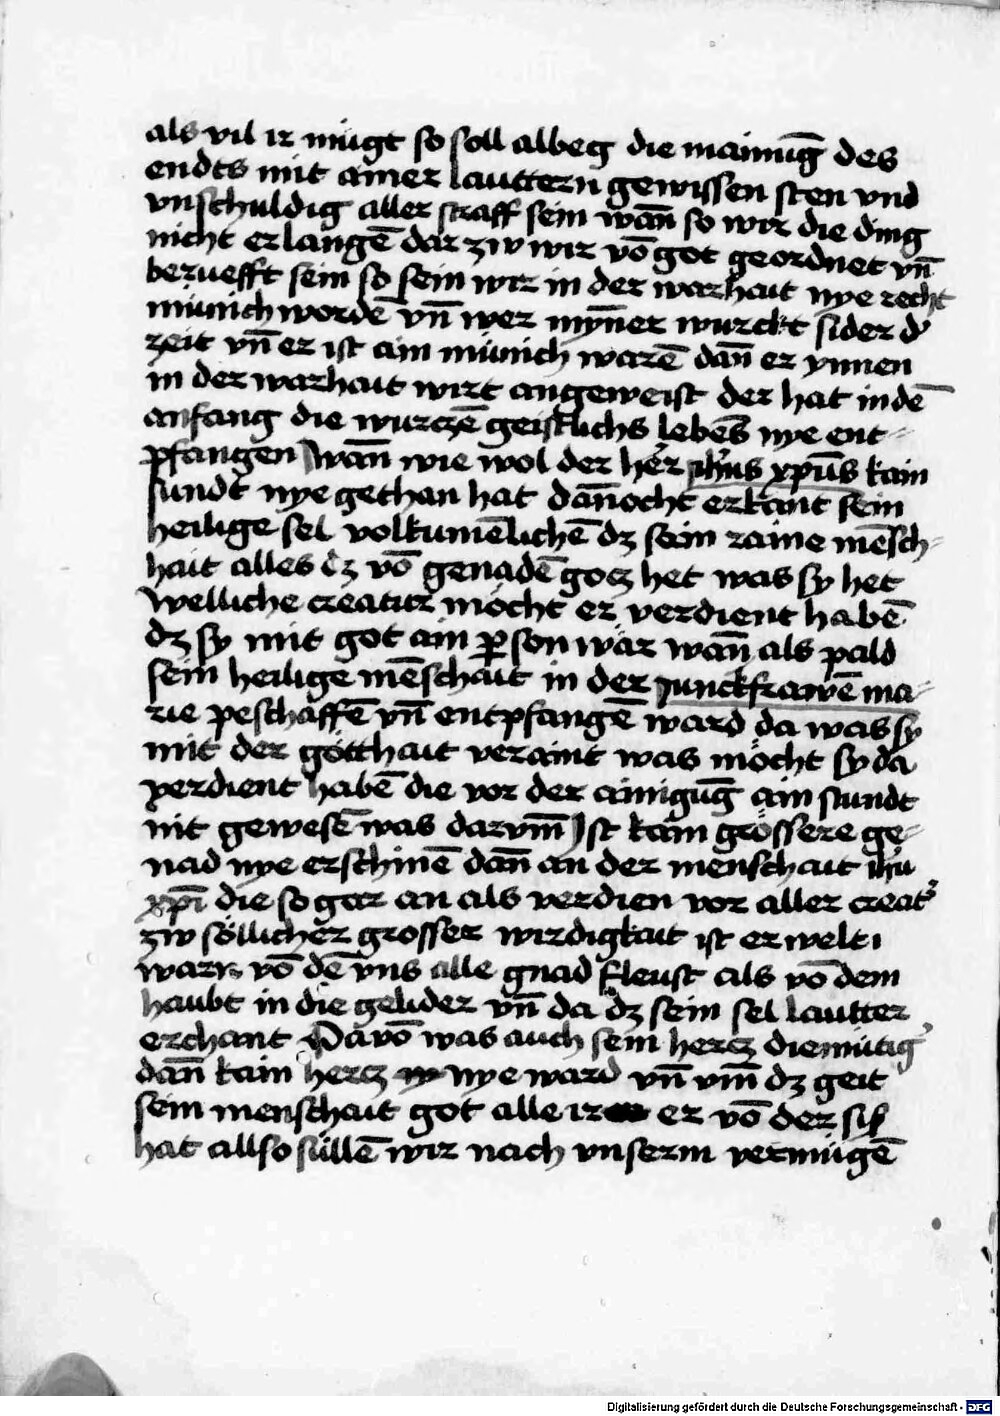 als vil ir mügt so soll albeg die mainūg des
endts mit ainer lauttern gewissen sten vnd
vnschuldig aller straff sein wañ so wir die ding
nicht erlangē dar zw wir vō got geordnet vñ
beruefft sein so sein wir in der warhait nye recht
münich wordē vñ wer mỹner wurckt sider d'
zeit vñ er ist ain münich warē dañ er ynnen
in der warhait wirt angeweist der hat in dē
anfang die wurczē geistlichs lebēs nye ent-
pfangen wañ wie wol der her ihūs xpūs kain
sundt nye gethan hat dañocht erkant sein
heilige sel volkumēlichē dz sein raine mēsch-
hait alles dz vō genadē gocz het was sy het
welliche creatur möcht er verdient habē
dz sy mit got ain person wär wañ als pald
sein heilige mēschait in der junckfrawē ma-
rie peschaffē vñ entpfangē ward da was sy
mit der gotthait veraint was möcht sy da
verdient habē die vor der ainigūg ain stundt
nit gewesē was darvm̄ Ist kain grössere ge-
nad nye erschinē dañ an der menschait ihū
xpī die so gar an als verdien vor aller creat'
zw söllicher grosser wirdigkait ist erwelt
warn vō dē vns alle gnad fleust als vō dem
haubt in die gelider vñ da dz sein sel lautter
erchant Da vō was auch sein hercz diemütig'
dañ kain hercz nye ward vñ vm̄ dz geit
sein menschait got alle ir er vō der sy
hat allso süllē wir nach vnserm vermügē
Digitalisierung gefördert durch die Deutsche Forschungsgemeinschaft - DFG